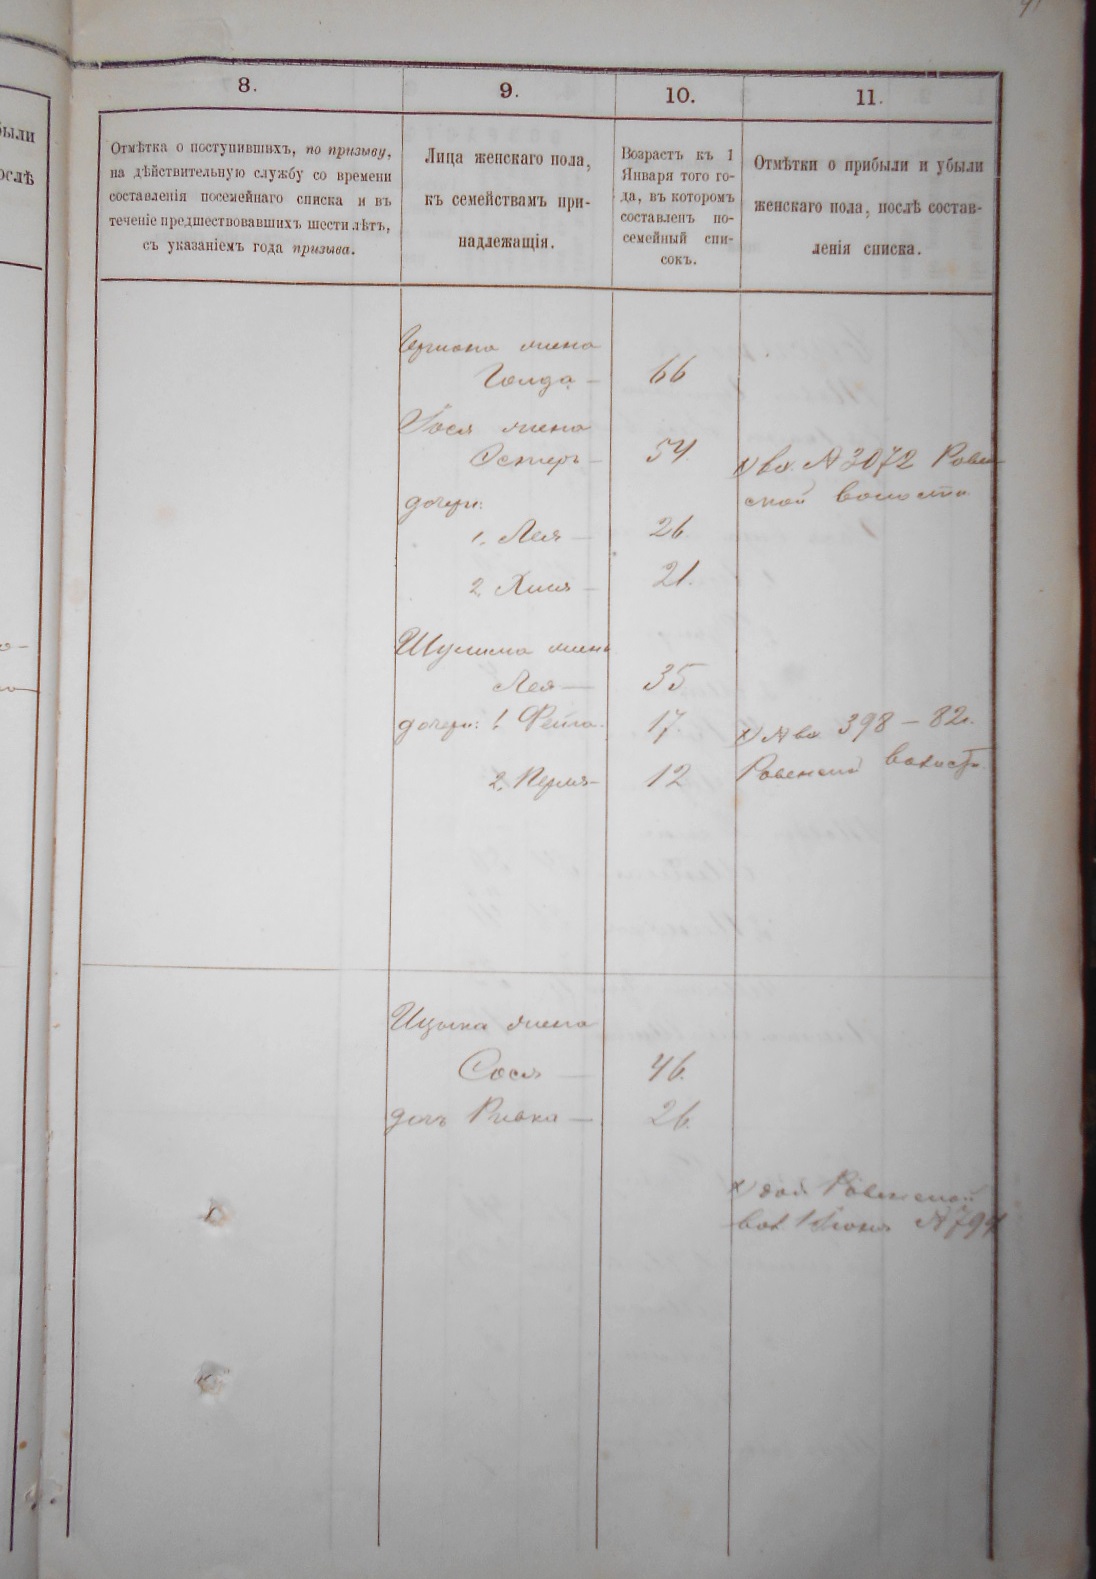 8.
9.
10.
11.
Отмѣтка о поступившихъ, по призыву,
на дѣйствительную службу со времени
составленія посемейнаго списка и въ
теченіе предшествовавшихъ шести лѣтъ,
съ указаніемъ года призыва.
Лица женскаго пола,
къ семействамъ при-
надлежащія.
Возрастъ къ 1
Января того го-
да, въ которомъ
составленъ по-
семейный спи-
сокъ.
Отмѣтки о прибыли и убыли
женскаго пола, послѣ состав-
ленія списка.
были
ослѣ
жена
Голда — 66
Іося жена
Эстеръ — 54 № 3072 Ровен-
ской волости
дочери:
1. Лея — 26
2. Хиля — 21.
Шулима жена
Лея — 35
дочери: 1. Фейга. 17. 398 – 82.
Ровенской волости
2. Перля — 12
Ицька жена
Сося — 46.
дочь Ривка — 26.
Ровенской
вол. 1 Іюня № 794